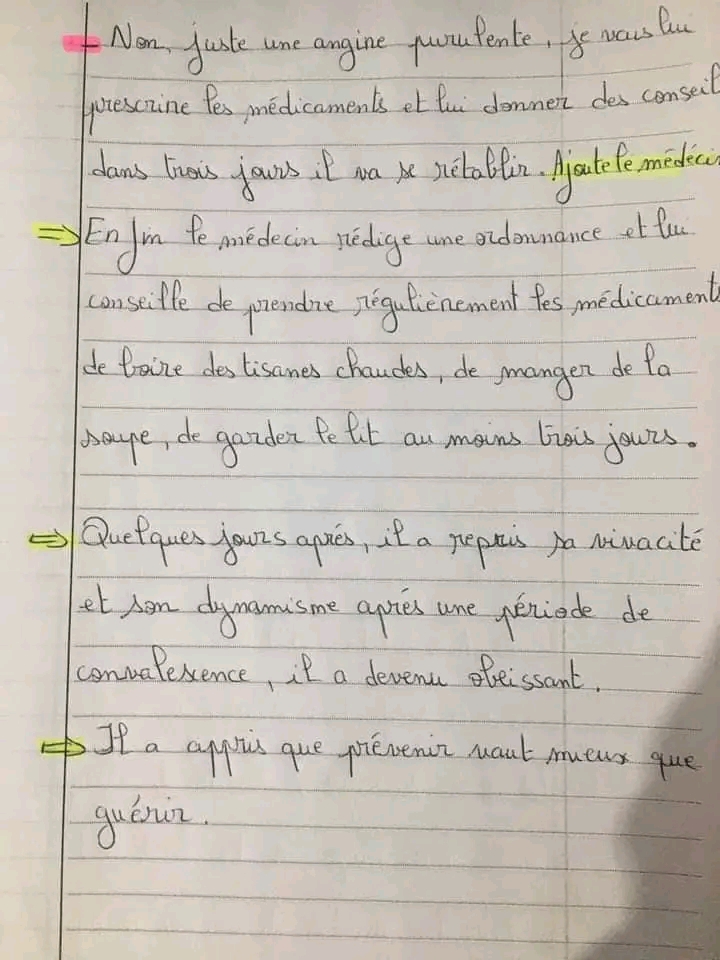 - Non, juste une angine purulente, je vais lui
prescrire les médicaments et lui donner des conseil
dans trois jours il va se rétablir. Ajoute le médécin
⇒ Enfin le médecin rédige une ordonnance et lui
conseille de prendre régulièrement les médicament
de boire des tisanes chaudes, de manger de la
soupe, de garder le lit au moins trois jours.
⇒ Quelques jours aprés, il a repris sa vivacité
et son dynamisme aprés une période de
convalescence, il a devenu obeissant.
⇒ Il a appris que prévenir vaut mieux que
guérir.